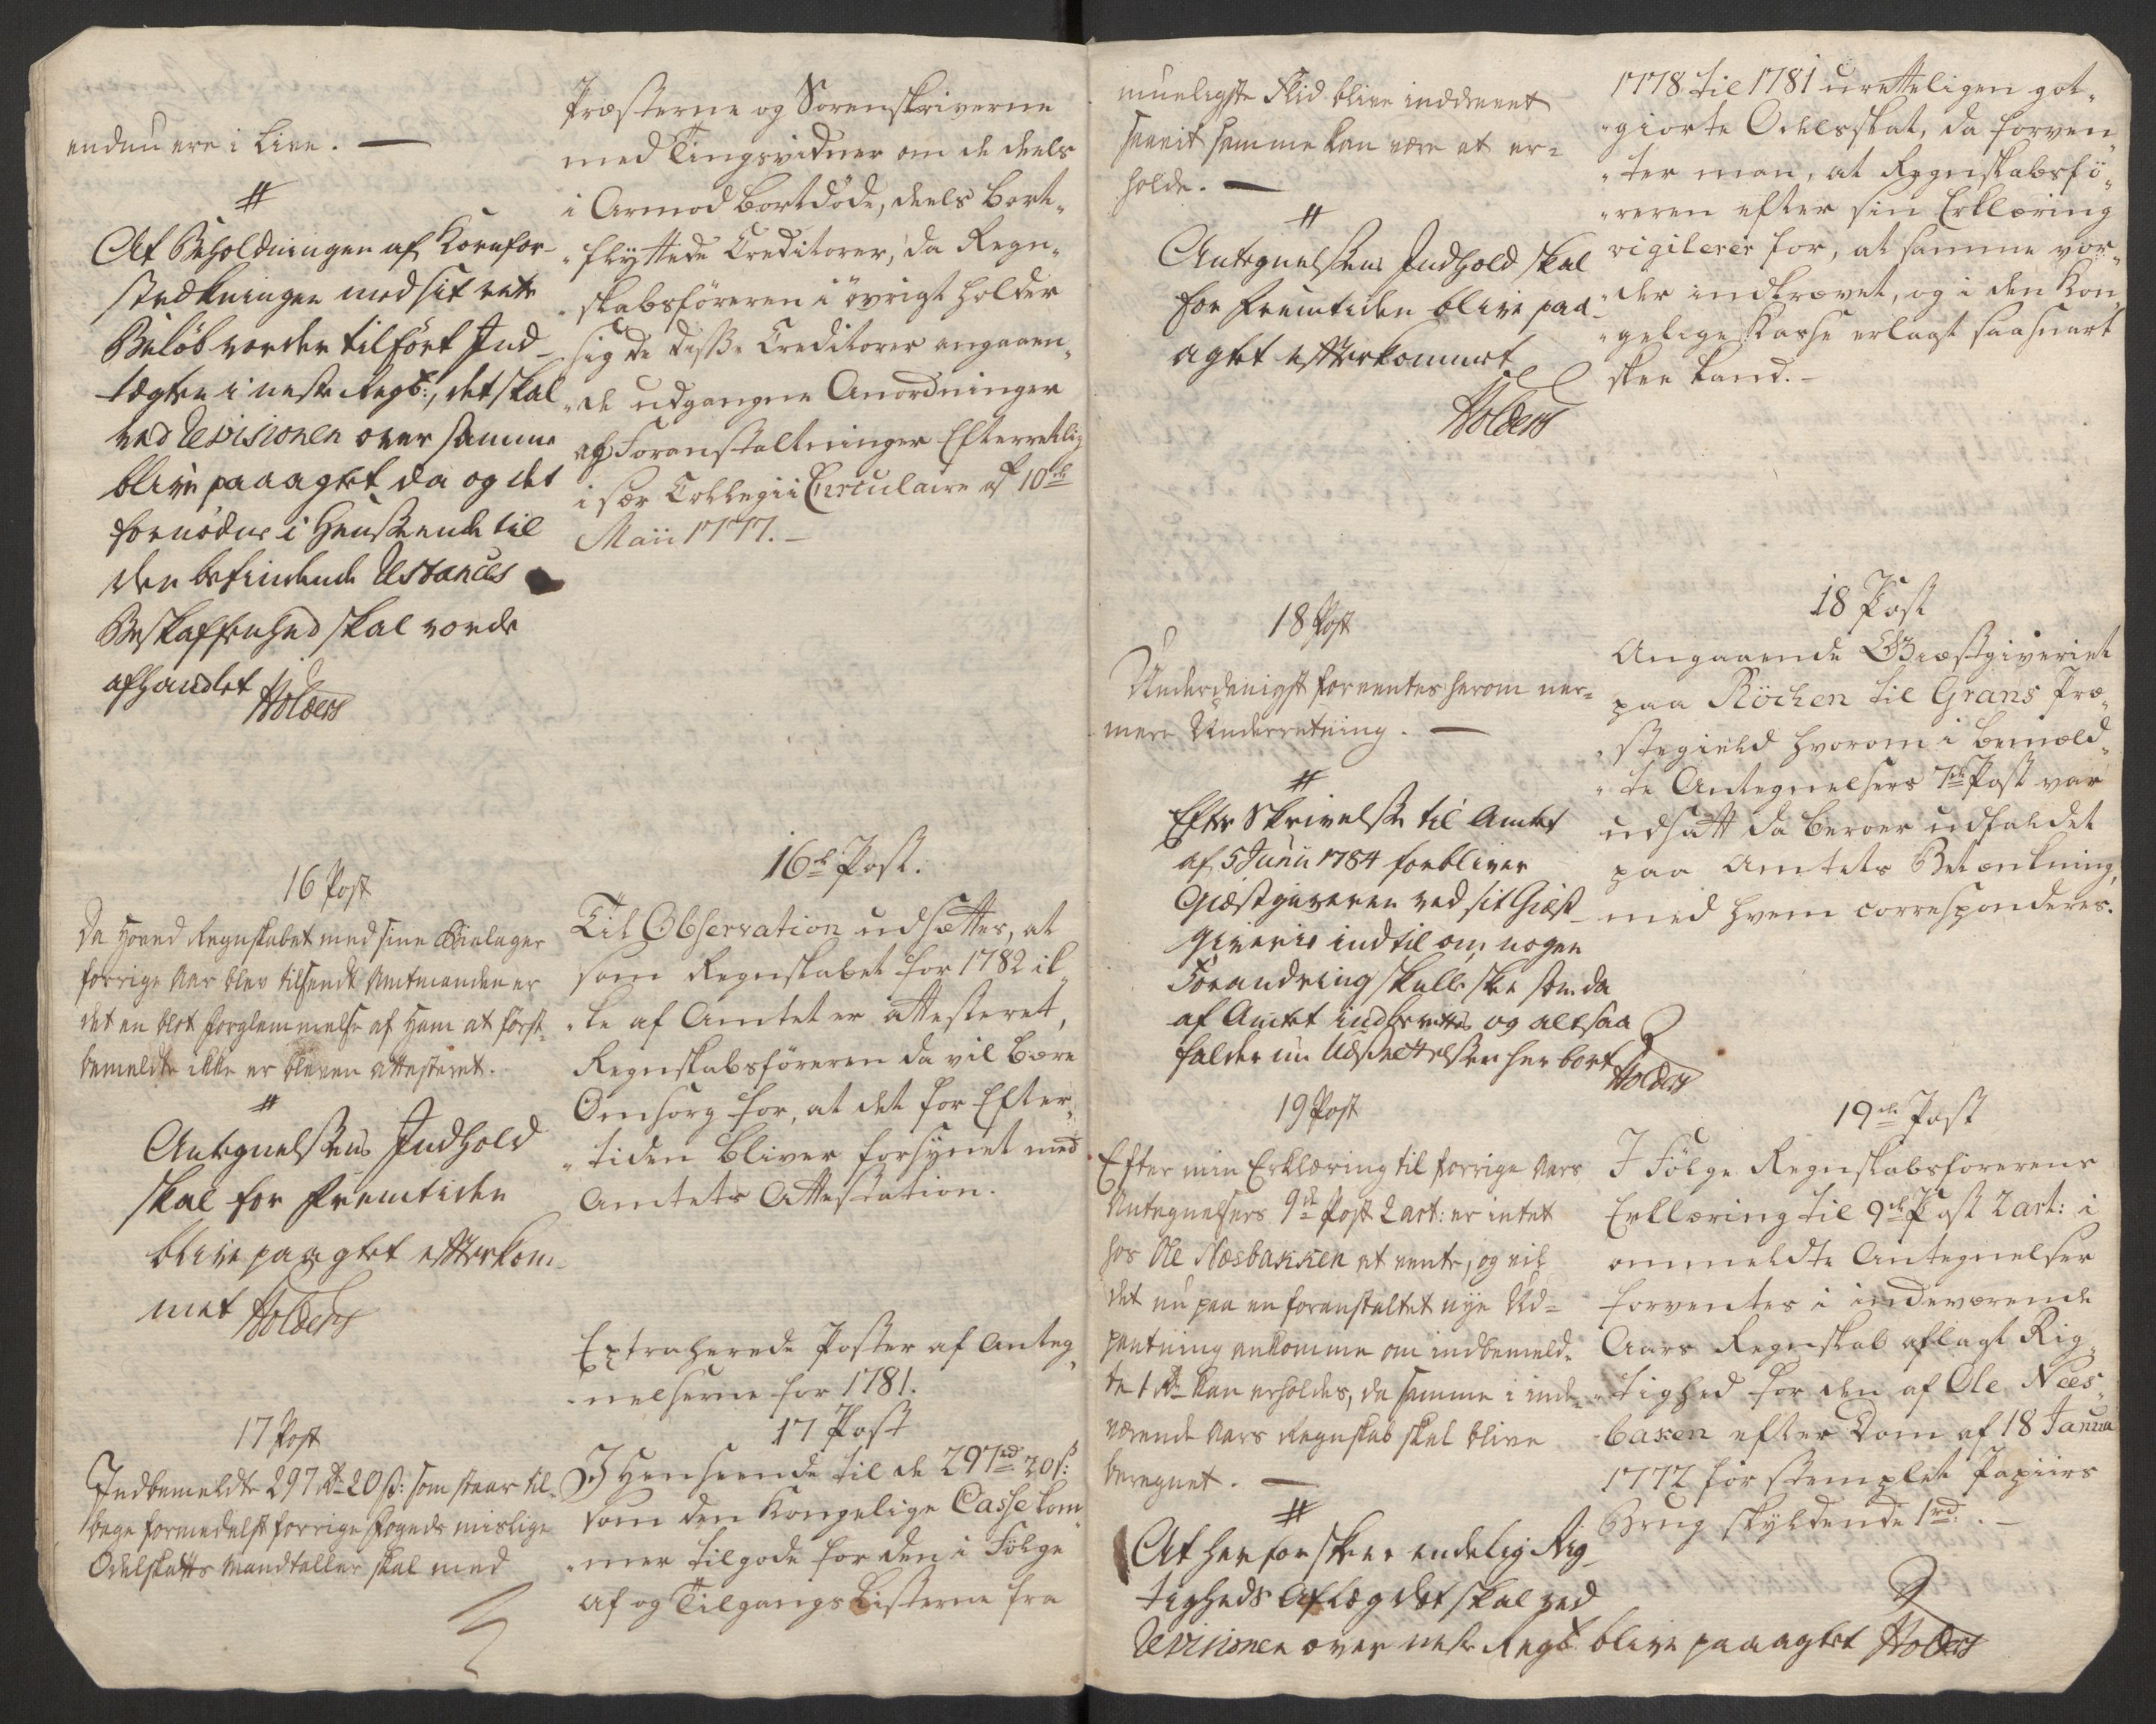 endnu ere i Live. —
#
At Beholdningen af Kornfor-
strækningen med sit rette
Beløb vorder tilført Ind-
tægten i neste Regsb:, det skal
ved Revisionen over samme
blive paaagtet da og det
fornødne i Henseende til
den befindende Restances
Beskaffenhed skal vorde
afhandlet Holders
16 Post
Da Hoved Regnskabet med sine Bielager
forrige Aar blev tilsendt Amtmanden er
det en blot Forglemmelse af Ham at først-
bemeldte ikke er bleven attesteret.
#
Antegnelsens Indhold
skal for Fremtiden
blive paagtet efterkom-
met Holders
17 Post
Indbemeldte 297 rd 20 s: som staar til-
bage formedelst forrige Fogeds mislige
Odelskatts Mandtaller skal med
Præsterne og Sorenskriverne
med Tingsvidner om de deels
i Armod bortdøde, deels bort-
flyttede Creditorer, da Regn-
skabsføreren i øvrigt holder
sig de disse Creditorer angaaen-
de udgangne Anordninger
og Foranstaltninger Efterrettelig
i sær Collegii Circulaire af 10de
Maii 1777. —
16de Post.
Til Observation udsættes, at
som Regnskabet for 1782 ik-
ke af Amtet er attesteret,
Regnskabsføreren da vil bære
Omsorg for, at det for Efter-
tiden bliver forsynet med
Amtets Attestation.
Extraherede Poster af Anteg-
nelserne for 1781.
17 Post
I Henseende til de 297 rd 20 s:
som den Kongelige Casse kom-
mer tilgode for den i Følge
af og Tilgangs Listerne fra
mueligste Flid blive inddrevet
saavit samme kan være at er-
holde. —
#
Antegnelsens Indhold skal
for Fremtiden blive paa-
agtet efterkommet
Holders
18 Post
Underdanigst forventes herom ner-
mere Underretning. —
#
Efter Skrivelse til Amtet
af 5 Junii 1784 forbliver
Giæstgiveren ved sit Giæst-
giverie indtil om nogen
Forandring skulle skee som da
af Amtet indberettes og altsaa
falder nu Udsættelsen her bort
Holders
19 Post
Efter min Erklæring til forrige Aars
Antegnelsers 9de Post 2 art: er intet
hos Ole Næsbakken at vente, og vil
det nu paa en foranstaltet nye Ud-
pantning ankomme om indbemeld-
te 1 rd kan erholdes, da samme i inde-
værende Aars Regnskab skal blive
beregnet. —
#
At her for skeer endelig Rig-
tigheds Aflæg det skal ved
Revisionen over neste Regsb. blive paaagtet Holders
1778 til 1781 uretteligen got-
giorte Odelsskat, da forven-
ter man, at Regnskabsfø-
reren efter sin Erklæring
vigilerer for, at samme vor-
der indkrævet, og i den Kon-
gelige Kasse erlagt saasnart
skee kand. —
18 Post
Angaaende Giæstgiveriet
paa Röcken til Grans Præ-
stegield hvorom i bemeld-
te Antegnelsers 7de Post var
udsatt da beroer udfaldet
paa Amtets Betænkning,
med hvem corresponderes.
19de Post
I Følge Regnskabsførerens
Erklæring til 9de Post 2 art: i
ommeldte Antegnelser
forventes i indeværende
Aars Regnskab aflagt Rig-
tighed for den af Ole Næs-
baken efter Dom af 18 Janua
1772 for stemplet Papiirs
Brug skyldende 1 rd. —